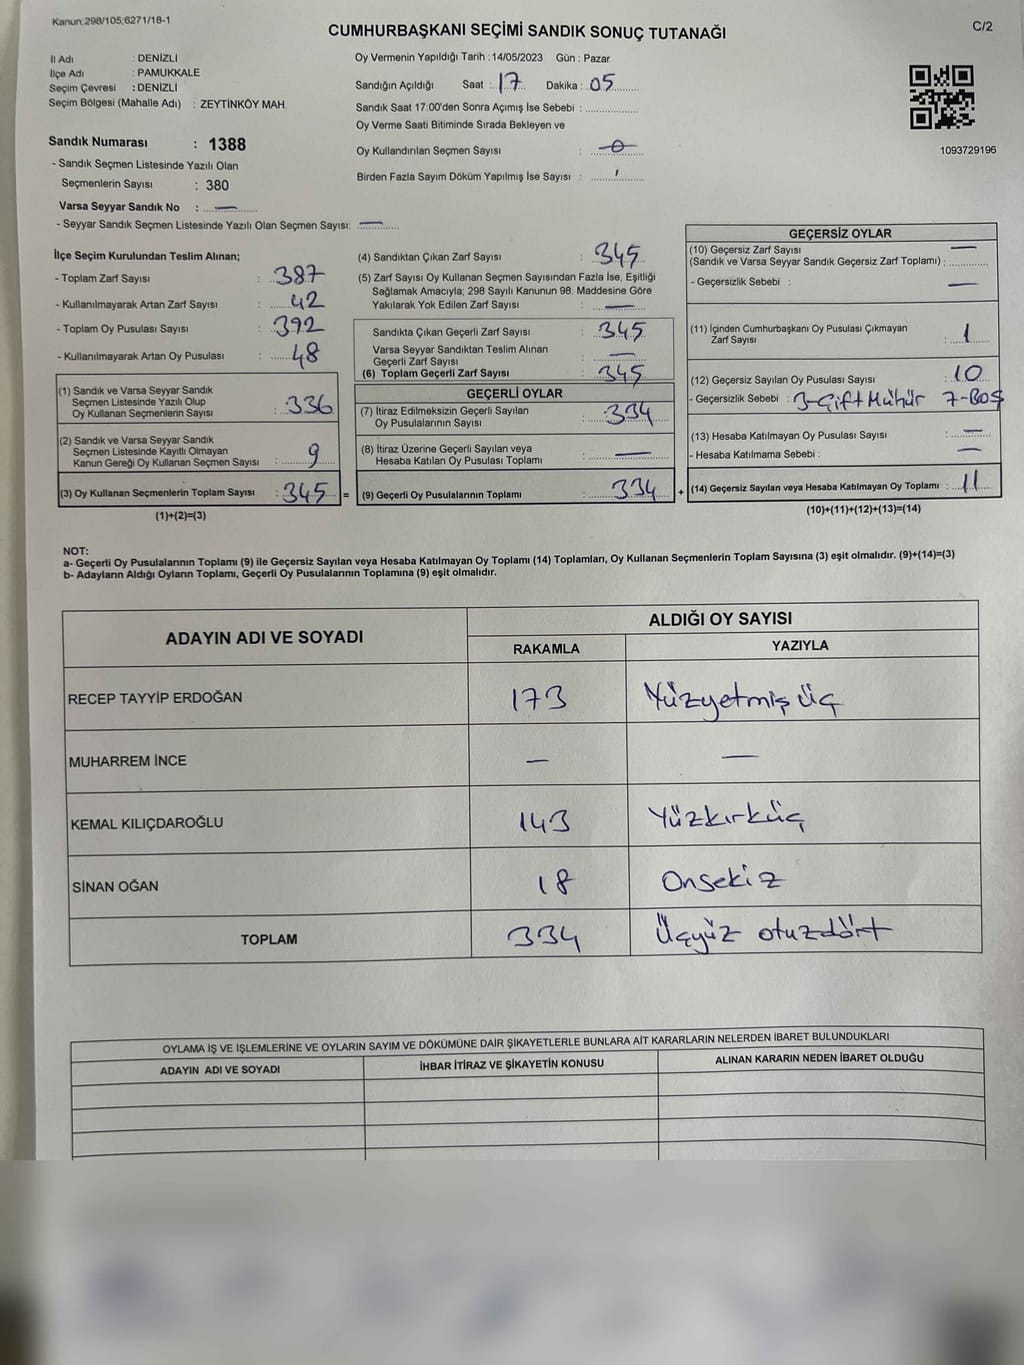 Kanun;298/105;6271/18-1
CUMHURBAŞKANI SEÇİMİ SANDIK SONUÇ TUTANAĞI
C/2
İl Adı : DENİZLİ
İlçe Adı : PAMUKKALE
Seçim Çevresi : DENİZLİ
Seçim Bölgesi (Mahalle Adı) : ZEYTİNKÖY MAH.
Sandık Numarası : 1388
- Sandık Seçmen Listesinde Yazılı Olan
Seçmenlerin Sayısı : 380
Varsa Seyyar Sandık No : —
- Seyyar Sandık Seçmen Listesinde Yazılı Olan Seçmen Sayısı: —
Oy Vermenin Yapıldığı Tarih : 14/05/2023 Gün : Pazar
Sandığın Açıldığı Saat : 17 Dakika : 05
Sandık Saat 17:00'den Sonra Açımış İse Sebebi :
Oy Verme Saati Bitiminde Sırada Bekleyen ve
Oy Kullandırılan Seçmen Sayısı : 0
Birden Fazla Sayım Döküm Yapılmış İse Sayısı :
1093729196
İlçe Seçim Kurulundan Teslim Alınan;
- Toplam Zarf Sayısı : 387
- Kullanılmayarak Artan Zarf Sayısı : 42
- Toplam Oy Pusulası Sayısı : 392
- Kullanılmayarak Artan Oy Pusulası : 48
(1) Sandık ve Varsa Seyyar Sandık
Seçmen Listesinde Yazılı Olup
Oy Kullanan Seçmenlerin Sayısı : 336
(2) Sandık ve Varsa Seyyar Sandık
Seçmen Listesinde Kayıtlı Olmayan
Kanun Gereği Oy Kullanan Seçmen Sayısı : 9
(3) Oy Kullanan Seçmenlerin Toplam Sayısı : 345 =
(1)+(2)=(3)
(4) Sandıktan Çıkan Zarf Sayısı : 345
(5) Zarf Sayısı Oy Kullanan Seçmen Sayısından Fazla İse, Eşitliği
Sağlamak Amacıyla; 298 Sayılı Kanunun 98. Maddesine Göre
Yakılarak Yok Edilen Zarf Sayısı : —
Sandıkta Çıkan Geçerli Zarf Sayısı : 345
Varsa Seyyar Sandıktan Teslim Alınan
Geçerli Zarf Sayısı : —
(6) Toplam Geçerli Zarf Sayısı : 345
GEÇERLİ OYLAR
(7) İtiraz Edilmeksizin Geçerli Sayılan
Oy Pusulalarının Sayısı : 334
(8) İtiraz Üzerine Geçerli Sayılan veya
Hesaba Katılan Oy Pusulası Toplamı : —
(9) Geçerli Oy Pusulalarının Toplamı : 334 +
GEÇERSİZ OYLAR
(10) Geçersiz Zarf Sayısı —
(Sandık ve Varsa Seyyar Sandık Geçersiz Zarf Toplamı) :
- Geçersizlik Sebebi : —
(11) İçinden Cumhurbaşkanı Oy Pusulası Çıkmayan
Zarf Sayısı : 1
(12) Geçersiz Sayılan Oy Pusulası Sayısı : 10
- Geçersizlik Sebebi : 3-Çift Mühür 7-Boş
(13) Hesaba Katılmayan Oy Pusulası Sayısı : —
- Hesaba Katılmama Sebebi : —
(14) Geçersiz Sayılan veya Hesaba Katılmayan Oy Toplamı : 11
(10)+(11)+(12)+(13)=(14)
NOT:
a- Geçerli Oy Pusulalarının Toplamı (9) ile Geçersiz Sayılan veya Hesaba Katılmayan Oy Toplamı (14) Toplamları, Oy Kullanan Seçmenlerin Toplam Sayısına (3) eşit olmalıdır. (9)+(14)=(3)
b- Adayların Aldığı Oyların Toplamı, Geçerli Oy Pusulalarının Toplamına (9) eşit olmalıdır.
ADAYIN ADI VE SOYADI
ALDIĞI OY SAYISI
RAKAMLA YAZIYLA
RECEP TAYYİP ERDOĞAN 173 Yüzyetmiş üç
MUHARREM İNCE — —
KEMAL KILIÇDAROĞLU 143 Yüzkırküç
SİNAN OĞAN 18 Onsekiz
TOPLAM 334 Üçyüz otuzdört
OYLAMA İŞ VE İŞLEMLERİNE VE OYLARIN SAYIM VE DÖKÜMÜNE DAİR ŞİKAYETLERLE BUNLARA AİT KARARLARIN NELERDEN İBARET BULUNDUKLARI
ADAYIN ADI VE SOYADI İHBAR İTİRAZ VE ŞİKAYETİN KONUSU ALINAN KARARIN NEDEN İBARET OLDUĞU